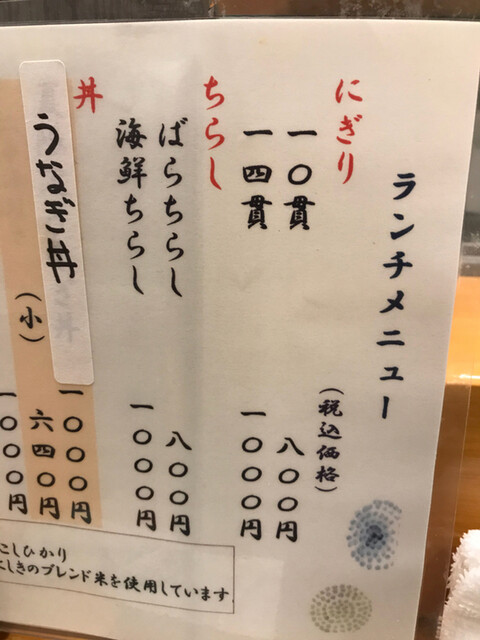 ランチメニュー
(税込価格)
にぎり
一〇貫 八〇〇円
一四貫 一〇〇〇円
ちらし
ばらちらし 八〇〇円
海鮮ちらし 一〇〇〇円
丼
うなぎ丼 一〇〇〇円
(小) 六四〇円
一〇〇〇円
こしひかり
しきのブレンド米を使用しています